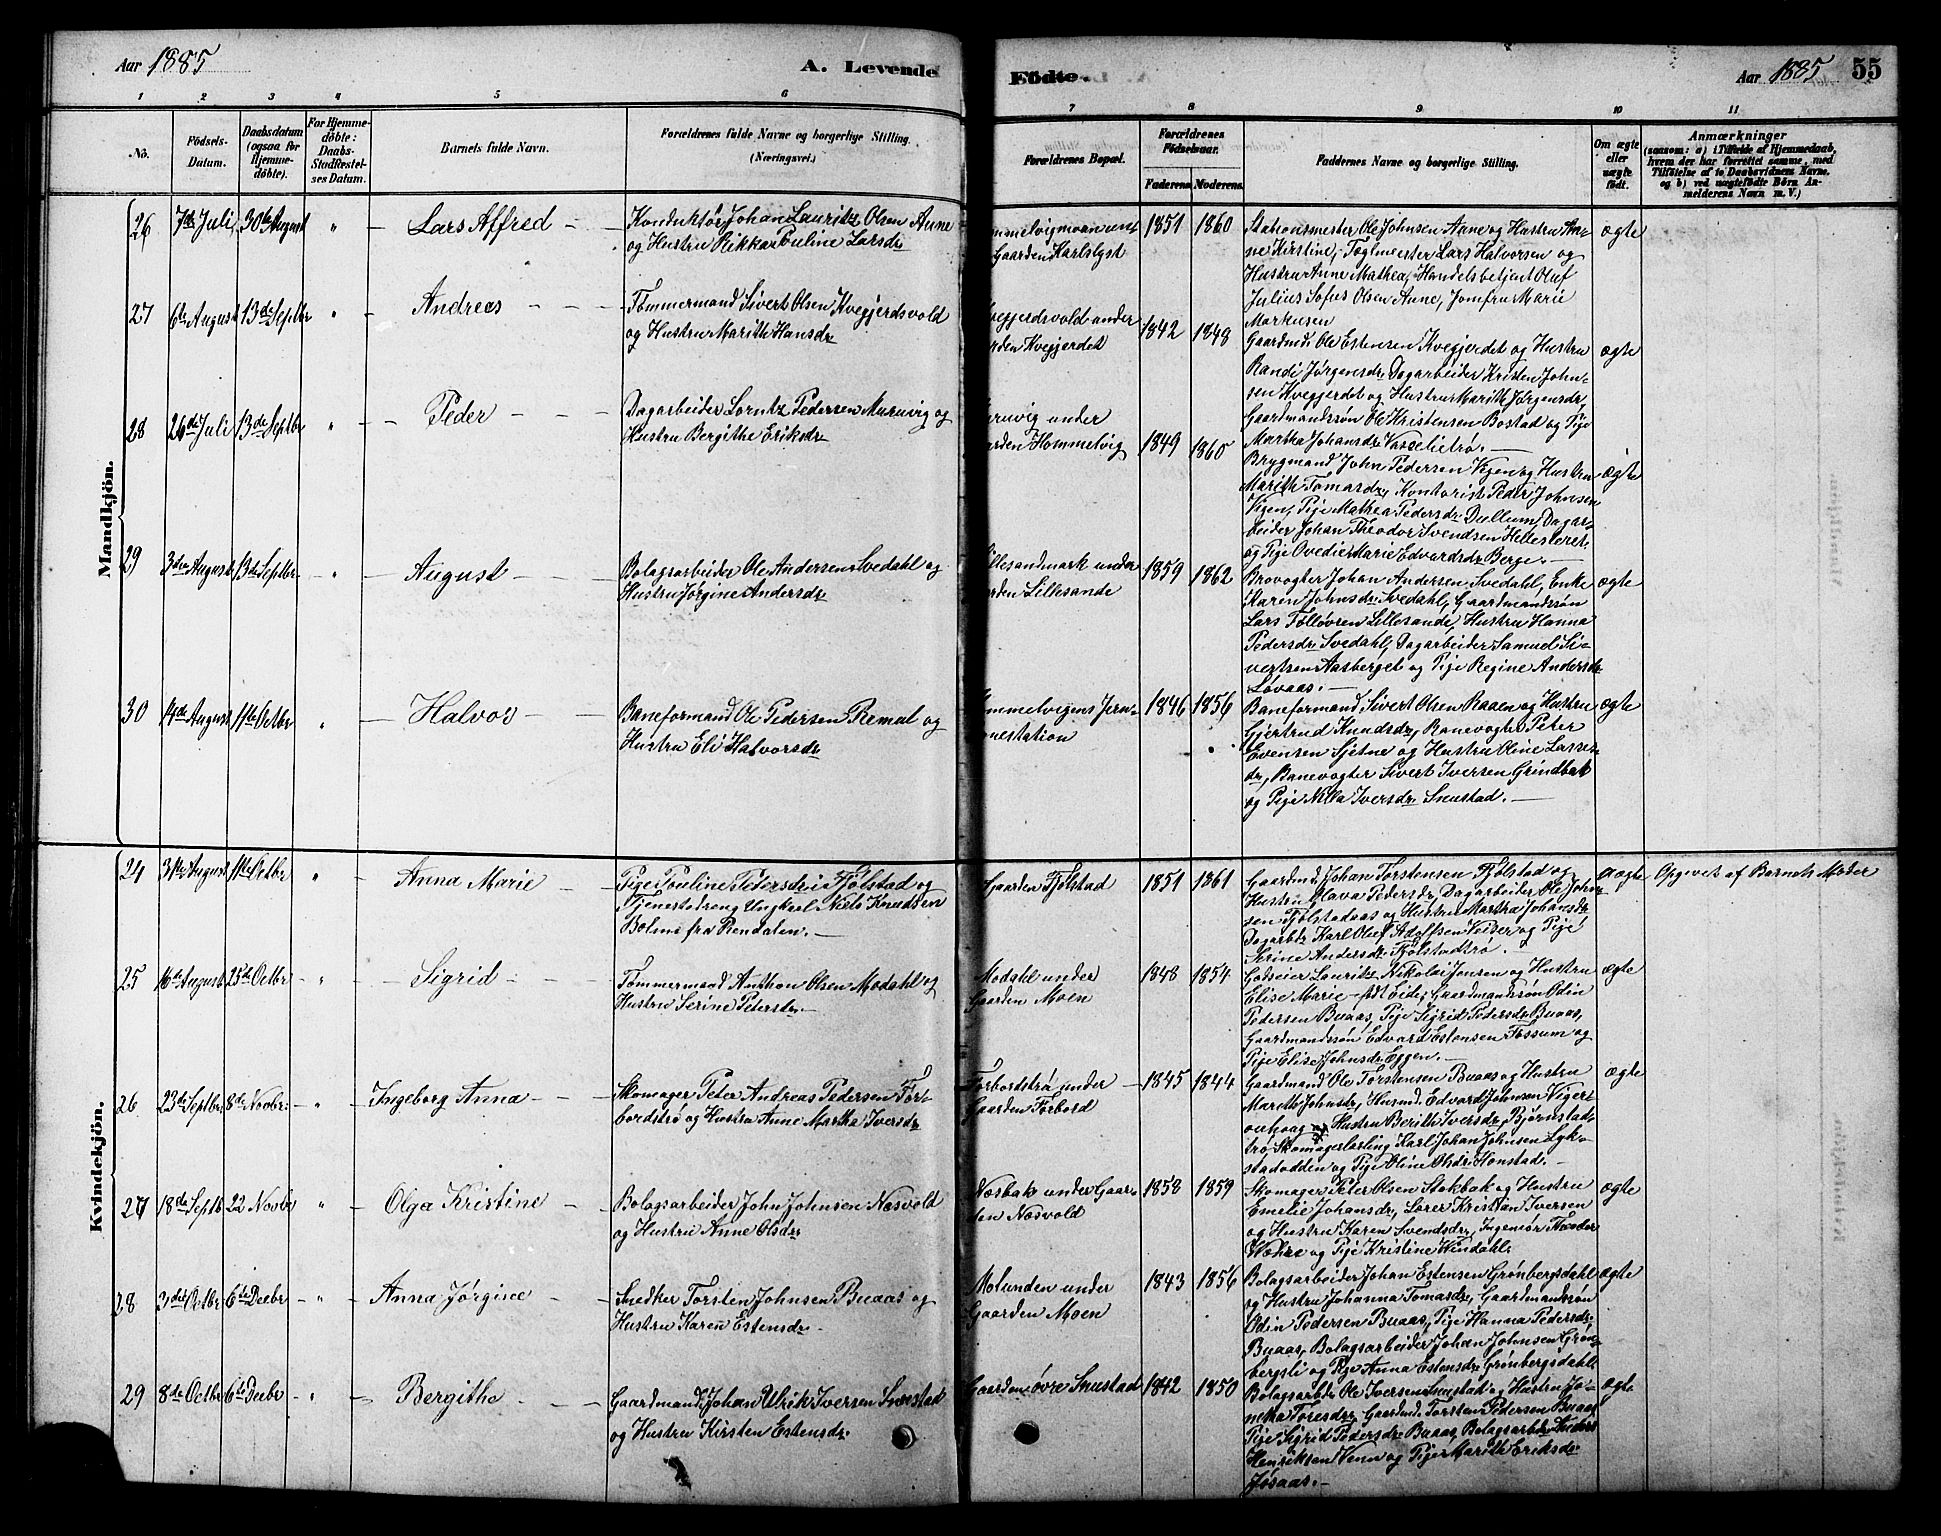 Aar 1885
A. Levende
Födte.
Aar 1885
55
1 2 3 4 5 6 7 8 9 10 11
No.
Födsels-
Datum.
Daabsdatum
(ogsaa for
Hjemme-
döbte).
For Hjemme-
döbte:
Daabs-
Stadfæstel-
ses Datum.
Barnets fulde Navn.
Forældrenes fulde Navne og borgerlige Stilling.
(Næringsvei.)
Forældrenes Bopæl.
Forældrenes
Födselsaar.
Faderens. Moderens.
Faddernes Navne og borgerlige Stilling.
Om ægte
eller
uægte
födt.
Anmærkninger
(saasom: a) i Tilfælde af Hjemmedaab,
hvem der har forrettet samme, med
Tilföielse af to Daabsvidners Navne,
og b) ved uægtefödte Börn An-
melderens Navn m. V.)
Mandkjön.
26 7de Juli, 30te August " Lars Alfred
Konduktør Johan Lauritz Olsen Aune
og Hustru Rikka Pouline Larsdr
mmelvigmoen und
Gaarden Karlslyst
1851 1860
Stationsmester Ole Johnsen Aune og Hustru An-
ne Kirstine, Togtmester Lars Halvorsen og
Hustru Anne Mathea, Handelsbetjent Oluf
Julius Sofus Olsen Aune, Jomfru Marie
Markusen
ægte
27 6te August 13de Septbr " Andreas
Tømmermand Sivert Olsen Kvegjerdsvold
og Hustru Marith Hansdr
vegjerdsvold under
rden Kvegjerdet
1842 1848
Gaardmd Ole Estensen Kvegjerdet og Hustru
Randi Jørgensdr, Dagarbeider Kristen John-
sen Kvegjerdet og Hustru Marith Jørgensdr,
Gaardmandssøn Ole Kristensen Bostad og Pige
Martha Johansdr Vasselietrø.
ægte
28 26de Juli 13de Septbr " Peder
Dagarbeider Lorntz Pedersen Muruvig og
Hustru Bergithe Eriksdr
uruvig under
rden Hommelvig
1849 1860
Brygmand John Pedersen Vigen og Hustru
Marith Tomasdr, Kontorist Peder Johnsen
Vigen, Pige Mathea Pedersdr Dullum, Dagar-
beider Johan Theodor Svendsen Hellesteret
og Pige Ovedie Marie Edvardsdr Berge.
ægte
29 3die August 13de Septbr " August
Bolagsarbeider Ole Andersen Svedahl og
Hustru Jørgine Andersdr
illesandmark under
rden Lillesande
1859 1862
Brovogter Johan Andersen Svedahl, Enke
Karen Johnsdr Svedahl, Gaardmandssøn
Lars Tolløvren Lillesande, Hustru Hanna
Pedersdr Svedahl, Dagarbeider Samuel Si-
vertsen Aasberget og Pige Regine Andersdr
Løvaas.
ægte
30 14de August 11te Octbr " Halvor
Baneformand Ole Pedersen Remul og
Hustru Eli Halvorsdr
ommelvigens Jern-
anestation
1846 1856
Baneformand Sivert Olsen Raaen og Hustru
Gjertrud Knudsdr, Banevogter Peter
Evensen Sjetne og Hustru Oline Lasses-
dr, Banevogter Sivert Iversen Grindbak
og Pige Nilla Iversdr Snustad.
ægte
Kvindekjön.
24 31te August 11te Octbr " Anna Marie
Pige Pouline Petersdr i Fjølstad og
Tjenestedreng Ungkarl Niels Knudsen
Bolme fra Rendalen.
Gaarden Fjølstad
1851 1861
Gaardmd Johan Torstensen Fjølstad og
Hustru Olava Pedersdr, Dagarbeider Ole John-
sen Fjølstadaas og Hustru Martha Johansdr
Dagarbdr Karl Oluf Adolfsen Veiser og Pige
Serine Andersdr Fjølstadtrø.
uægte
Opgivet af Barnets Moder
25 16de August 25de Octbr " Sigrid
Tømmermand Anthon Olsen Modahl og
Hustru Serine Petersdr.
Modahl under
Gaarden Moen
1848 1854
Godseier Lauritz Nikolai Jensen og Hustru
Elise Marie født Eide, Gaardmandssøn Odin
Pedersen Buaas, Pige Sigrid Pedersdr Buaas,
Gaardmandssøn Edvard Estensen Fossum og
Pige Elise Johnsdr Eggen.
ægte
26 23de Septbr 8de Novbr " Ingeborg Anna
Skomager Peter Andreas Pedersen For-
bordstrø og Hustru Anne Martha Iversdr
Forbordstrø under
Gaarden Forbord
1845 1844
Gaardmand Ole Torstensen Buaas og Hustru
Marith Johnsdr, Husmd Edvard Johnsen Viger-
ovhaag og Hustru Berith Iversdr Bjørnstad-
trø Skomagerlærling Karl Johan Johnsen Lyk-
stadodden og Pige Oline Olsdr Honstad.
ægte
27 18de Septb 22 Novbr " Olga Kristine
Bolagsarbeider John Johnsen Næsvold
og Hustru Anne Olsdr
Næsbak under Gaar-
den Næsvold
1858 1859
Skomager Peter Olsen Stokbak og Hustru
Emelie Johansdr, Lærer Kristian Iversen
og Hustru Karen Svendsdr, Ingeniør Theodor
og Pige Kristine Windahl.
ægte
28 3die Octbr 6te Decbr " Anna Jørgine
Snedker Torsten Johnsen Buaas og
Hustru Karen Estensdr.
Molunden under
Gaarden Moen
1843 1856
Bolagsarbeider Johan Estensen Grønbergsdahl
og Hustru Johanna Tomasdr, Gaardmandssøn
Odin Pedersen Buaas, Pige Hanna Pedersdr
Buaas, Bolagsarbeider Johan Johnsen Grøn-
bergsli og Pige Anna Estensdr Grønbergsdahl
ægte
29 8de Octbr 6te Decbr " Bergithe
Gaardmand Johan Ulrik Iversen Snustad
og Hustru Kirsten Estensdr.
Gaarden øvre Snustad
1842 1850
Bolagsarbdr Ole Iversen Snustad og Hustru Jo-
netta Toresdr, Gaardmd Torsten Pedersen Buaas
Pige Sigrid Pedersdr Buaas, Bolagsarbdr Anders
Henriksen Venn og Pige Marith Eriksdr
Jøsaas.
ægte